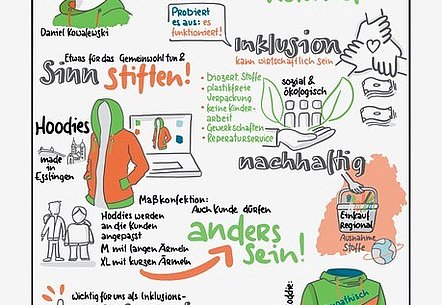 Daniel Kowalewski
Probiert
es aus: es
funktioniert!
Inklusion
kann wirtschaftlich sein
Etwas für das Gemeinwohl tun &
Sinn stiften!
• biozert. Stoffe
• plastikfreie
Verpackung
• keine Kinder-
arbeit
• Gewerkschaften
• Reperaturservice
sozial &
ökologisch
nachhaltig
Hoodies
made in
Esslingen
Maßkonfektion:
Hoddies werden
an die Kunden
angepasst
M mit langen Ärmeln
XL mit kurzen Ärmeln
Auch Kunde dürfen
anders
sein!
Einkauf
Regional
Ausnahme
Stoffe
Wichtig für uns als Inklusions-